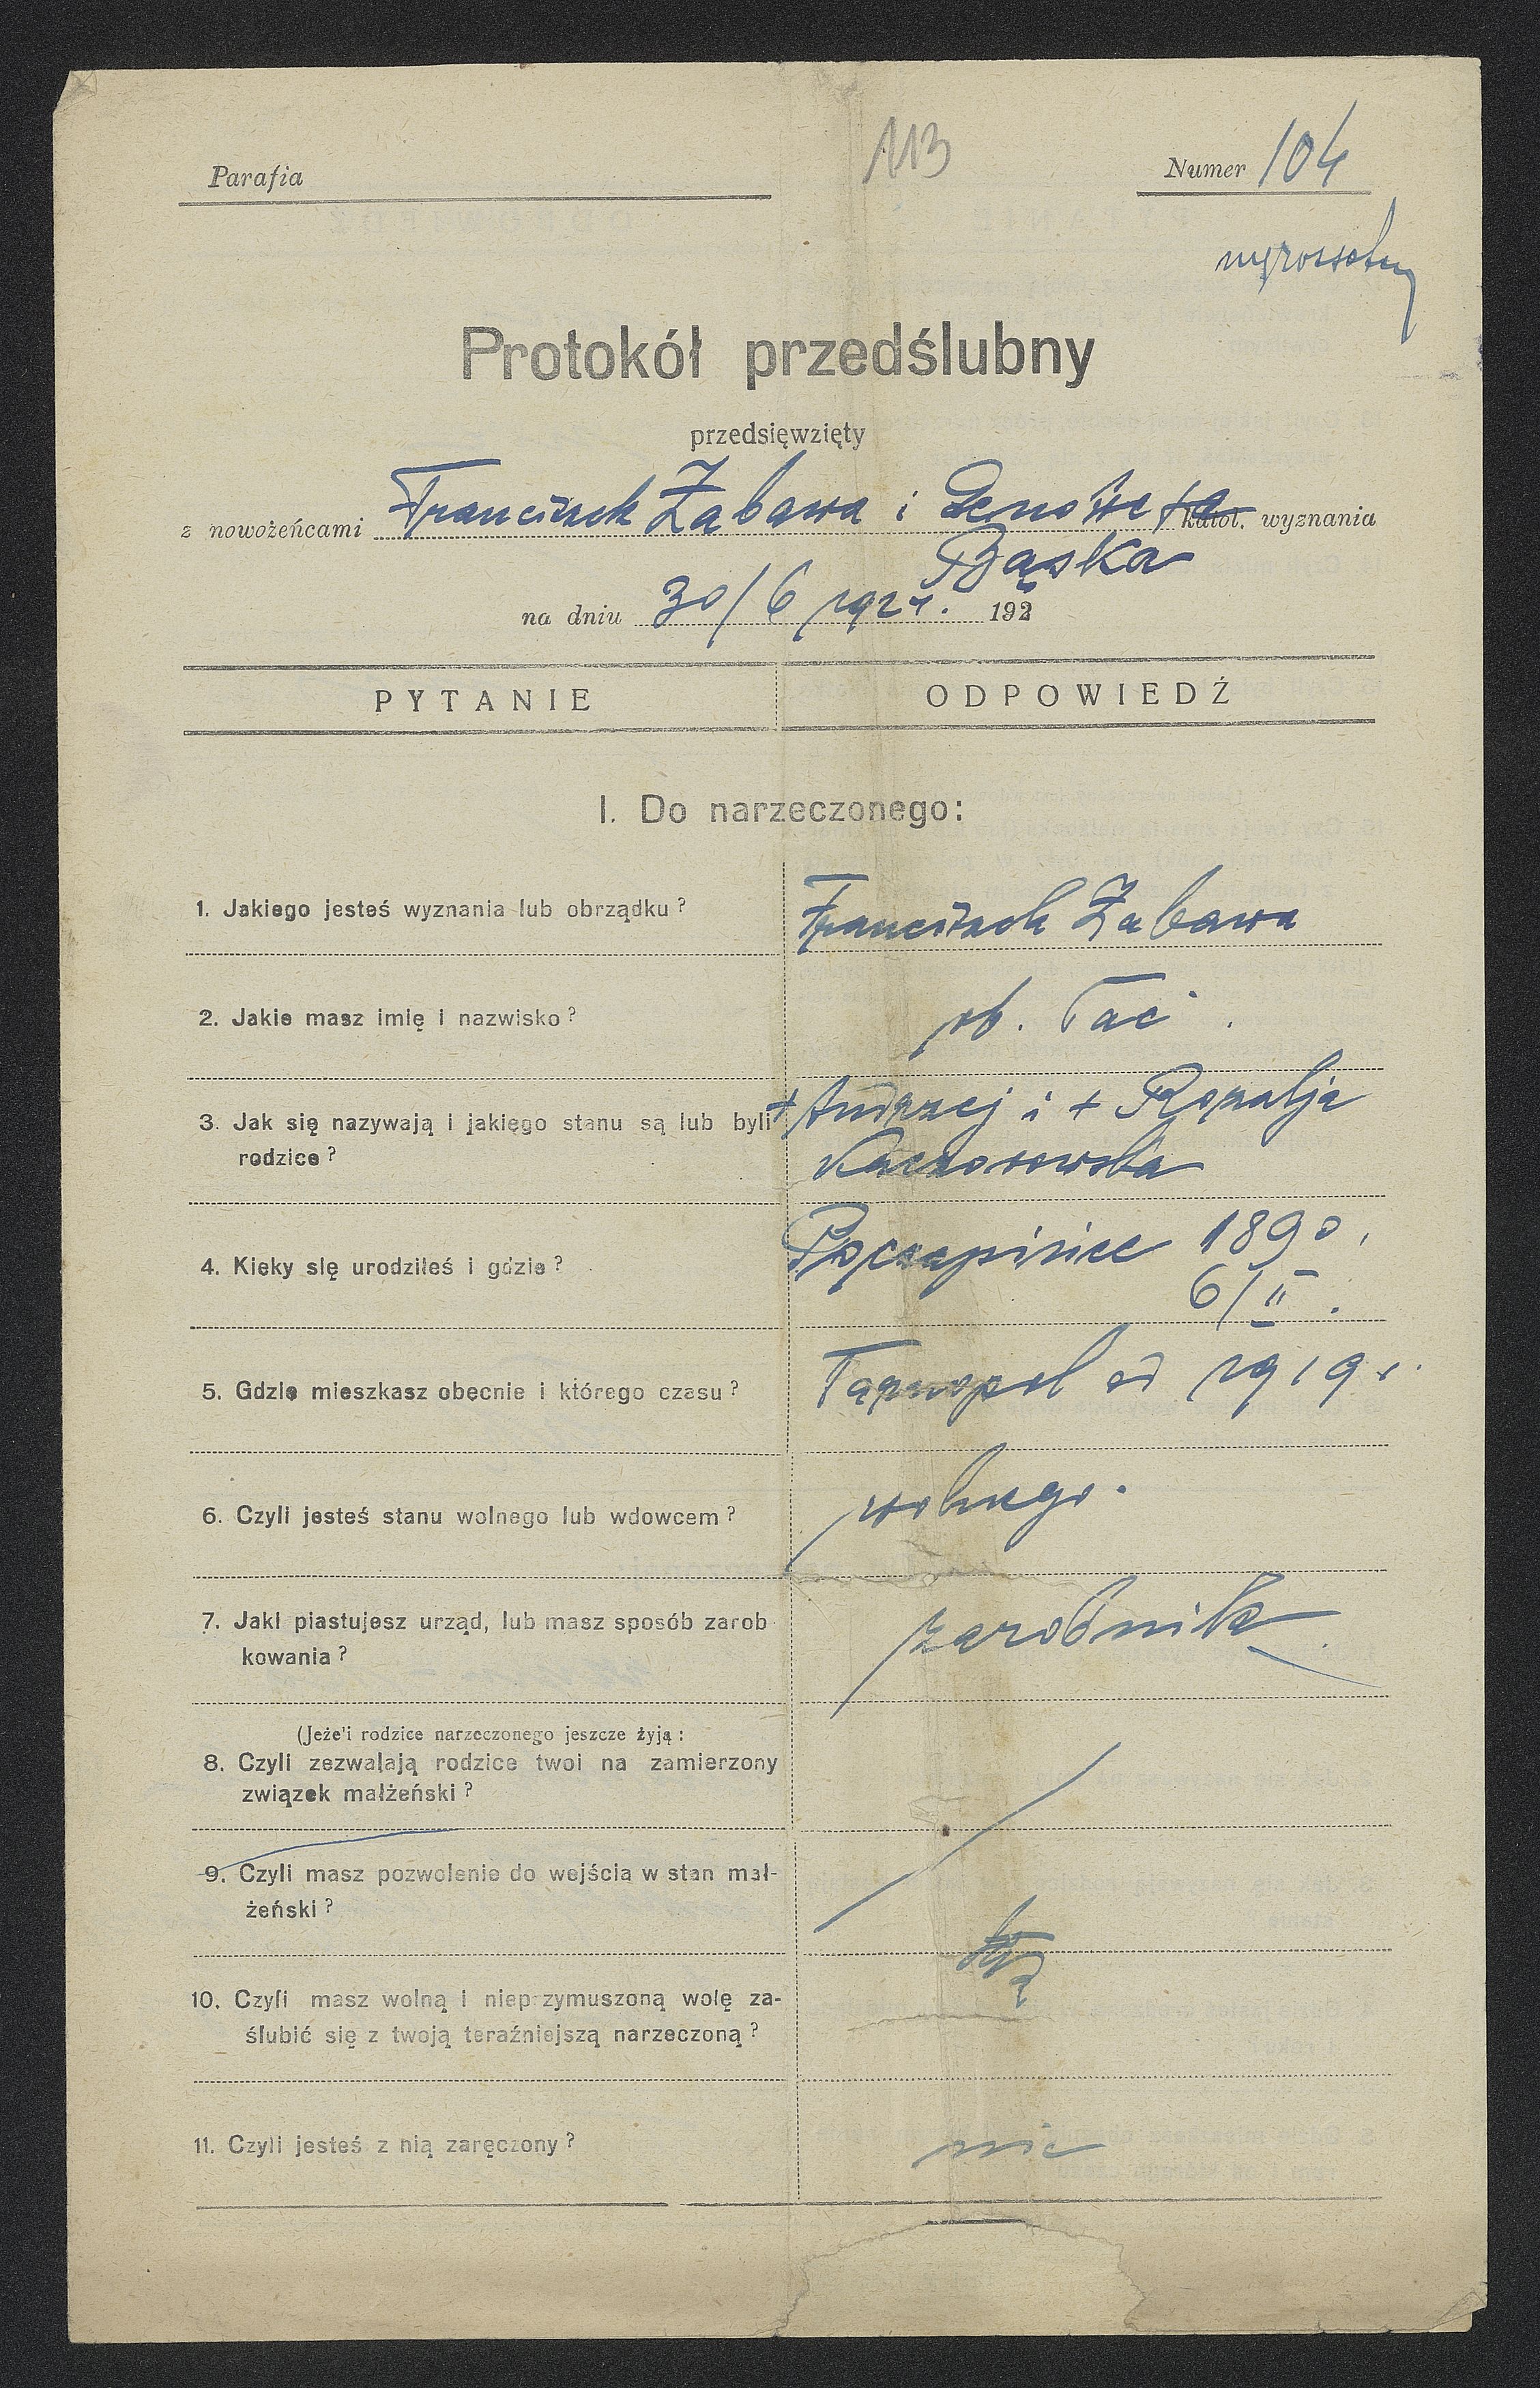 Parafia
113
Numer 104
Protokół przedślubny
przedsięwzięty
z nowożeńcami Franciszek Zabawa i Genowefa katol. wyznania
Bąska
na dniu 30/6 1924. 192
PYTANIE ODPOWIEDŹ
I. Do narzeczonego:
1. Jakiego jesteś wyznania lub obrządku? Franciszek Zabawa
2. Jakie masz imię i nazwisko? ob. łać.
3. Jak się nazywają i jakięgo stanu są lub byli + Andrzej i + Rozalja
rodzice? Kaczorowska
4. Kieky się urodziłeś i gdzie? 1890,
6/II.
5. Gdzie mieszkasz obęcnie i którego czasu? Tarnopol od 1919 r.
6. Czyli jesteś stanu wolnego lub wdowcem? wolnego.
7. Jaki piastujesz urząd, lub masz sposób zarob zarobnik
kowania?
(Jeże'i rodzice narzeczonego jeszcze żyją:
8. Czyli zezwalają rodzice twoi na zamierzony
związek małżeński?
9. Czyli masz pozwolenie do wejścia w stan mał-
żeński?
10. Czyli masz wolną i nieprzymuszoną wolę za-
ślubić się z twoją teraźniejszą narzeczoną?
11. Czyli jesteś z nią zaręczony? nie